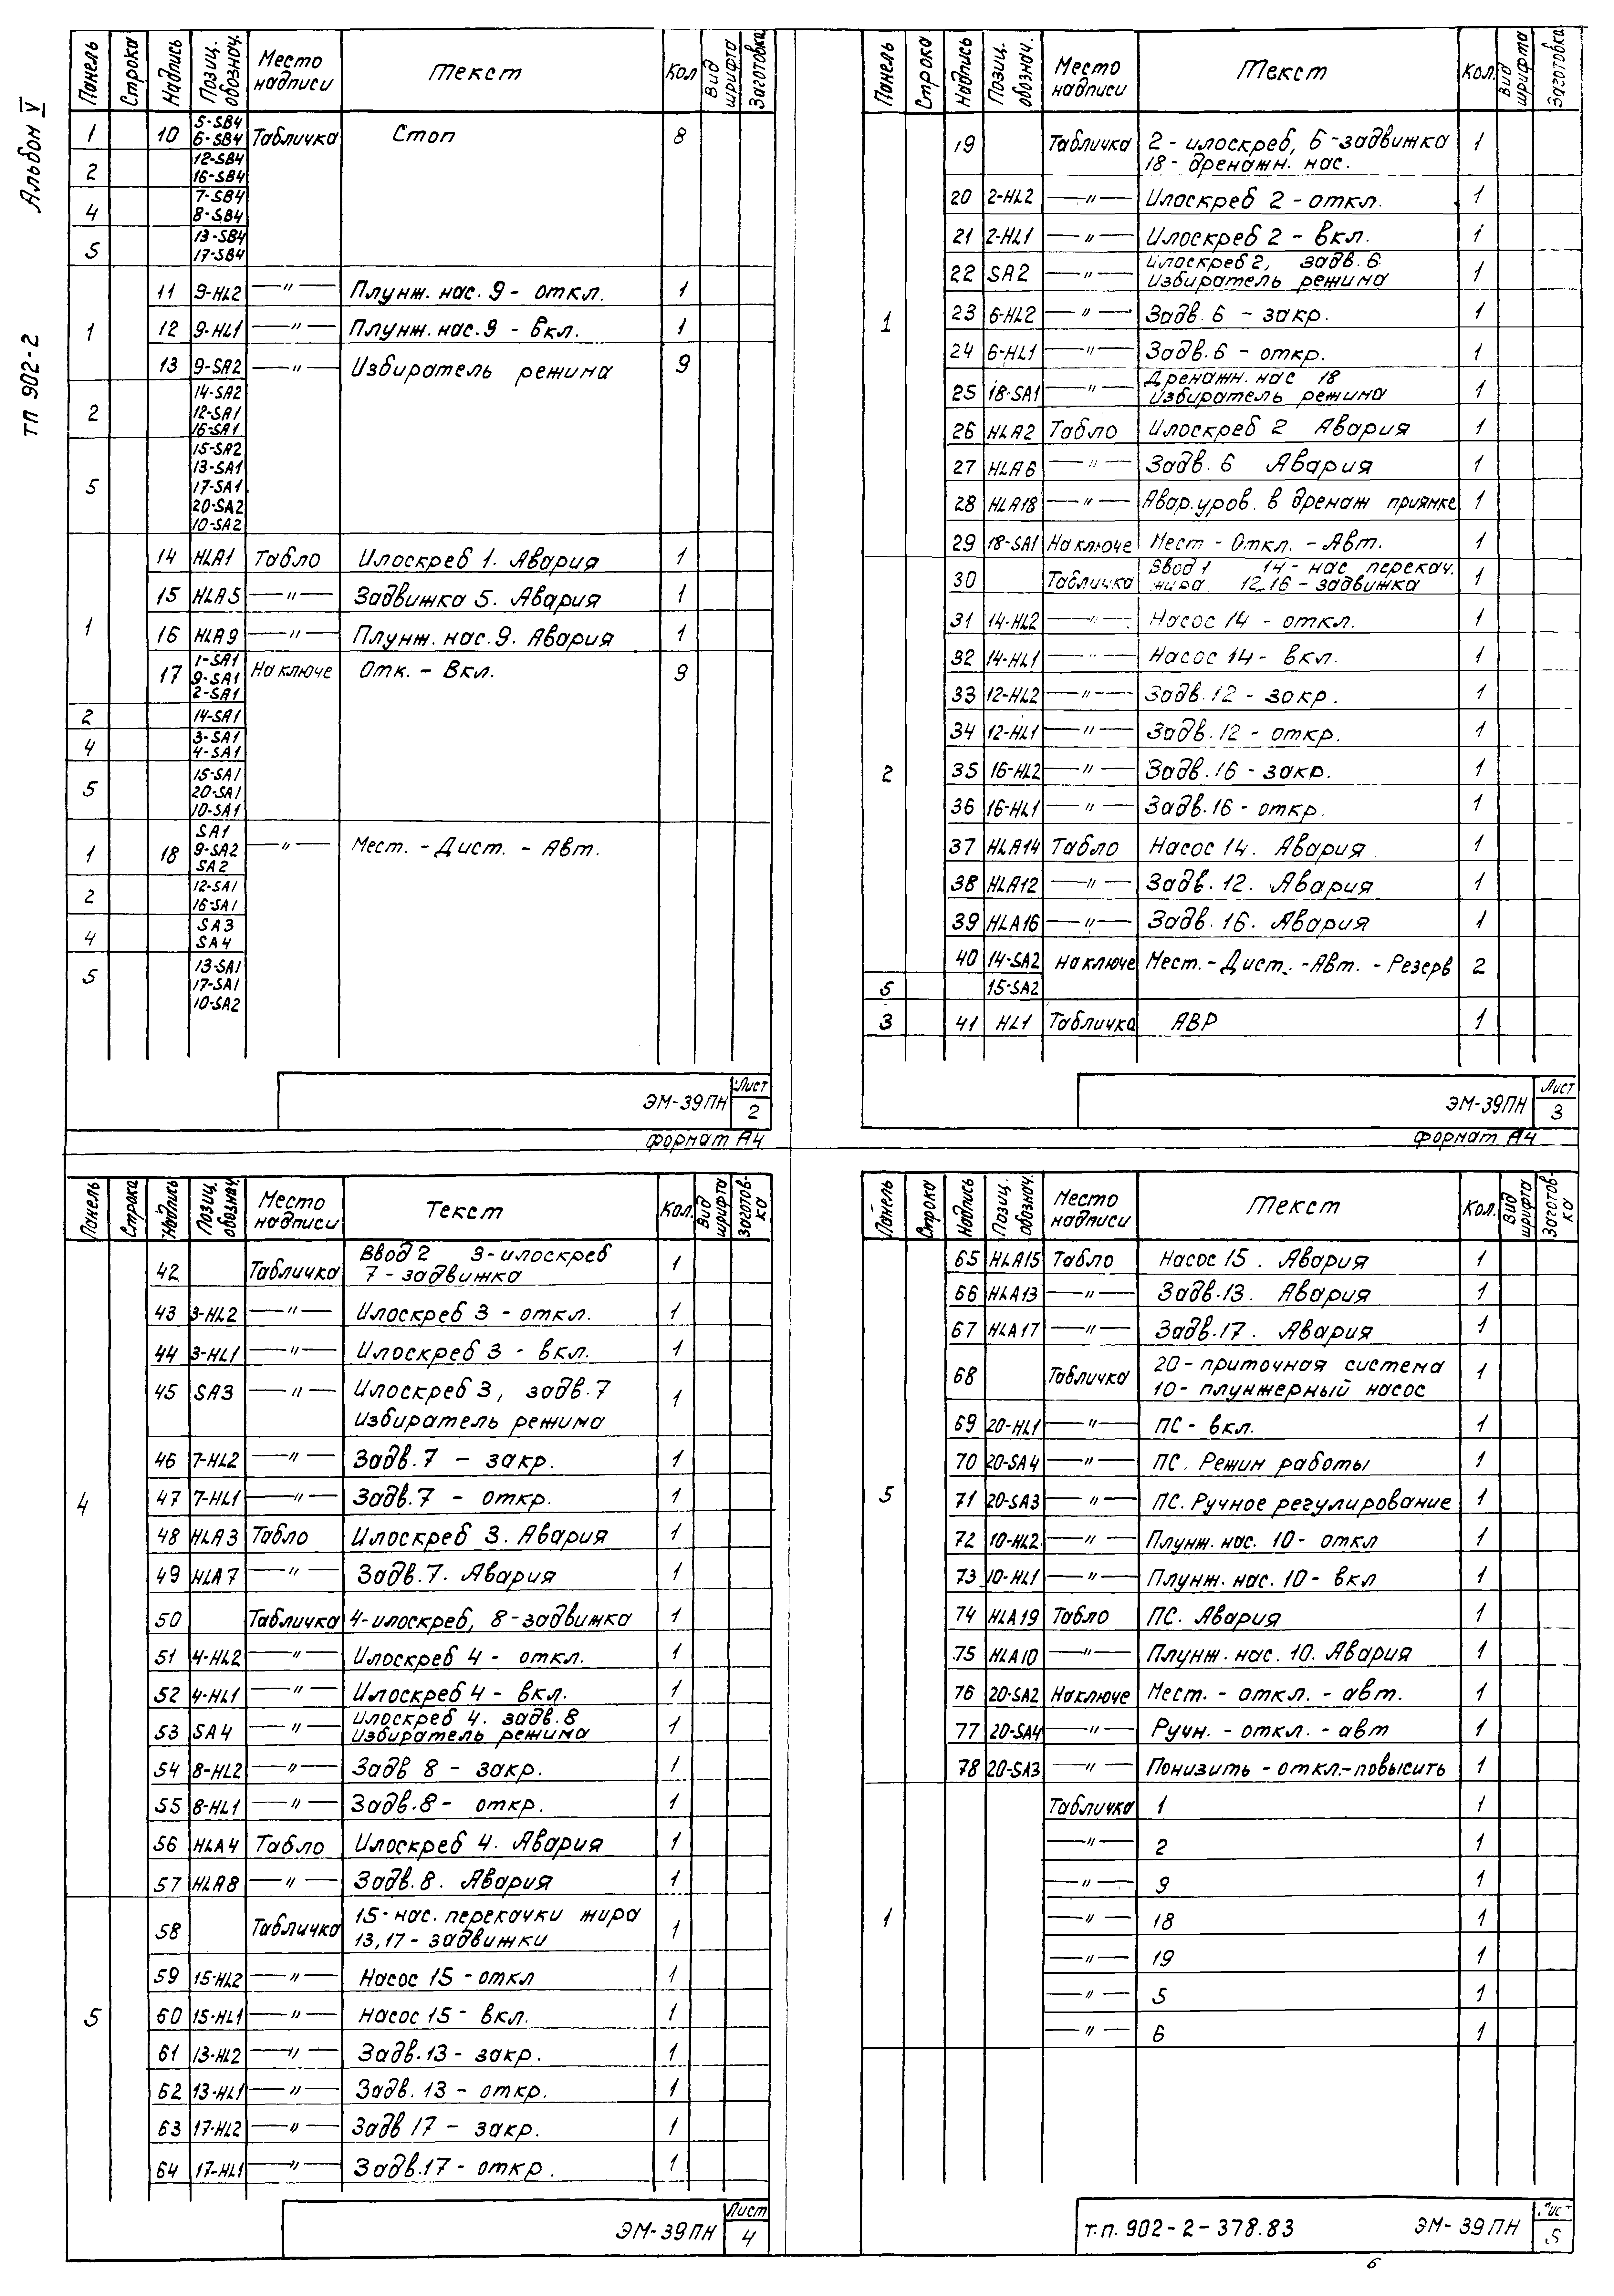 Альбом V
ТП 902-2
Панель Строка Надпись Позиц. обознач. Место надписи Текст Кол Вид шрифта Заготовка
1 10 5-SB4 6-SB4 Табличка Стоп 8
2 12-SB4 16-SB4
4 7-SB4 8-SB4
5 13-SB4 17-SB4
1 11 9-HL2 —〃— Плунж. нас. 9 - откл. 1
12 9-HL1 —〃— Плунж. нас. 9 - вкл. 1
13 9-SA2 —〃— Избиратель режима 9
2 14-SA2 12-SA1 16-SA1
5 15-SA2 13-SA1 17-SA1 20-SA2 10-SA2
1 14 HLA1 Табло Илоскреб 1. Авария 1
15 HLA5 —〃— Задвижка 5. Авария 1
16 HLA9 —〃— Плунж. нас. 9. Авария 1
17 1-SA1 9-SA1 2-SA1 На ключе Отк. - Вкл. 9
2 14-SA1
4 3-SA1 4-SA1
5 15-SA1 20-SA1 10-SA1
1 18 SA1 9-SA2 SA2 —〃— Мест. - Дист. - Авт.
2 12-SA1 16-SA1
4 SA3 SA4
5 13-SA1 17-SA1 10-SA2
ЭМ-39ПН Лист 2
формат А4
Панель Строка Надпись Позиц. обознач. Место надписи Текст Кол. Вид шрифта Заготовка
1 19 Табличка 2 - илоскреб, 6 - задвижка
18 - дренажн. нас. 1
20 2-HL2 —〃— Илоскреб 2 - откл. 1
21 2-HL1 —〃— Илоскреб 2 - вкл. 1
22 SA2 —〃— Илоскреб 2, задв. 6
Избиратель режима 1
23 6-HL2 —〃— Задв. 6 - закр. 1
24 6-HL1 —〃— Задв. 6 - откр. 1
25 18-SA1 —〃— Дренажн. нас 18
Избиратель режима 1
26 HLA2 Табло Илоскреб 2 Авария 1
27 HLA6 —〃— Задв. 6 Авария 1
28 HLA18 —〃— Авар. уров. в дренаж приямке 1
29 18-SA1 На ключе Мест - Откл. - Авт. 1
2 30 Табличка Ввод 1 14 - нас перекач.
жира 12,16 - задвижка 1
31 14-HL2 —〃— Насос 14 - откл. 1
32 14-HL1 —〃— Насос 14 - вкл. 1
33 12-HL2 —〃— Задв. 12 - закр. 1
34 12-HL1 —〃— Задв. 12 - откр. 1
35 16-HL2 —〃— Задв. 16 - закр. 1
36 16-HL1 —〃— Задв. 16 - откр. 1
37 HLA14 Табло Насос 14. Авария 1
38 HLA12 —〃— Задв. 12. Авария 1
39 HLA16 —〃— Задв. 16. Авария 1
40 14-SA2 На ключе Мест. - Дист. - Авт. - Резерв 2
5 15-SA2
3 41 HL1 Табличка АВР 1
ЭМ-39ПН Лист 3
формат А4
Панель Строка Надпись Позиц. обознач. Место надписи Текст Кол. Вид шрифта Заготовка
4 42 Табличка Ввод 2 3 - илоскреб
7 - задвижка 1
43 3-HL2 —〃— Илоскреб 3 - откл. 1
44 3-HL1 —〃— Илоскреб 3 - вкл. 1
45 SA3 —〃— Илоскреб 3, задв. 7
Избиратель режима 1
46 7-HL2 —〃— Задв. 7 - закр. 1
47 7-HL1 —〃— Задв. 7 - откр. 1
48 HLA3 Табло Илоскреб 3. Авария 1
49 HLA7 —〃— Задв. 7. Авария 1
50 Табличка 4 - илоскреб, 8 - задвижка 1
51 4-HL2 —〃— Илоскреб 4 - откл. 1
52 4-HL1 —〃— Илоскреб 4 - вкл. 1
53 SA4 —〃— Илоскреб 4. задв. 8
Избиратель режима 1
54 8-HL2 —〃— Задв 8 - закр. 1
55 8-HL1 —〃— Задв. 8 - откр. 1
56 HLA4 Табло Илоскреб 4. Авария 1
57 HLA8 —〃— Задв. 8. Авария 1
5 58 Табличка 15 - нас. перекачки жира
13, 17 - задвижки 1
59 15-HL2 —〃— Насос 15 - откл 1
60 15-HL1 —〃— Насос 15 - вкл. 1
61 13-HL2 —〃— Задв. 13 - закр. 1
62 13-HL1 —〃— Задв. 13 - откр. 1
63 17-HL2 —〃— Задв 17 - закр. 1
64 17-HL1 —〃— Задв. 17 - откр. 1
ЭМ-39ПН Лист 4
Панель Строка Надпись Позиц. обознач. Место надписи Текст Кол. Вид шрифта Заготовка
5 65 HLA15 Табло Насос 15. Авария 1
66 HLA13 —〃— Задв. 13. Авария 1
67 HLA17 —〃— Задв. 17. Авария 1
68 Табличка 20 - приточная система
10 - плунжерный насос 1
69 20-HL1 —〃— ПС - вкл. 1
70 20-SA4 —〃— ПС. Режим работы 1
71 20-SA3 —〃— ПС. Ручное регулирование 1
72 10-HL2 —〃— Плунж. нас. 10 - откл 1
73 10-HL1 —〃— Плунж. нас. 10 - вкл 1
74 HLA19 Табло ПС. Авария 1
75 HLA10 —〃— Плунж. нас. 10. Авария 1
76 20-SA2 На ключе Мест. - откл. - авт. 1
77 20-SA4 —〃— Ручн. - откл. - авт 1
78 20-SA3 —〃— Понизить - откл. - повысить 1
1 Табличка 1 1
—〃— 2 1
—〃— 9 1
—〃— 18 1
—〃— 19 1
—〃— 5 1
—〃— 6 1
т.п. 902-2-378.83 ЭМ-39ПН Лист 5
6